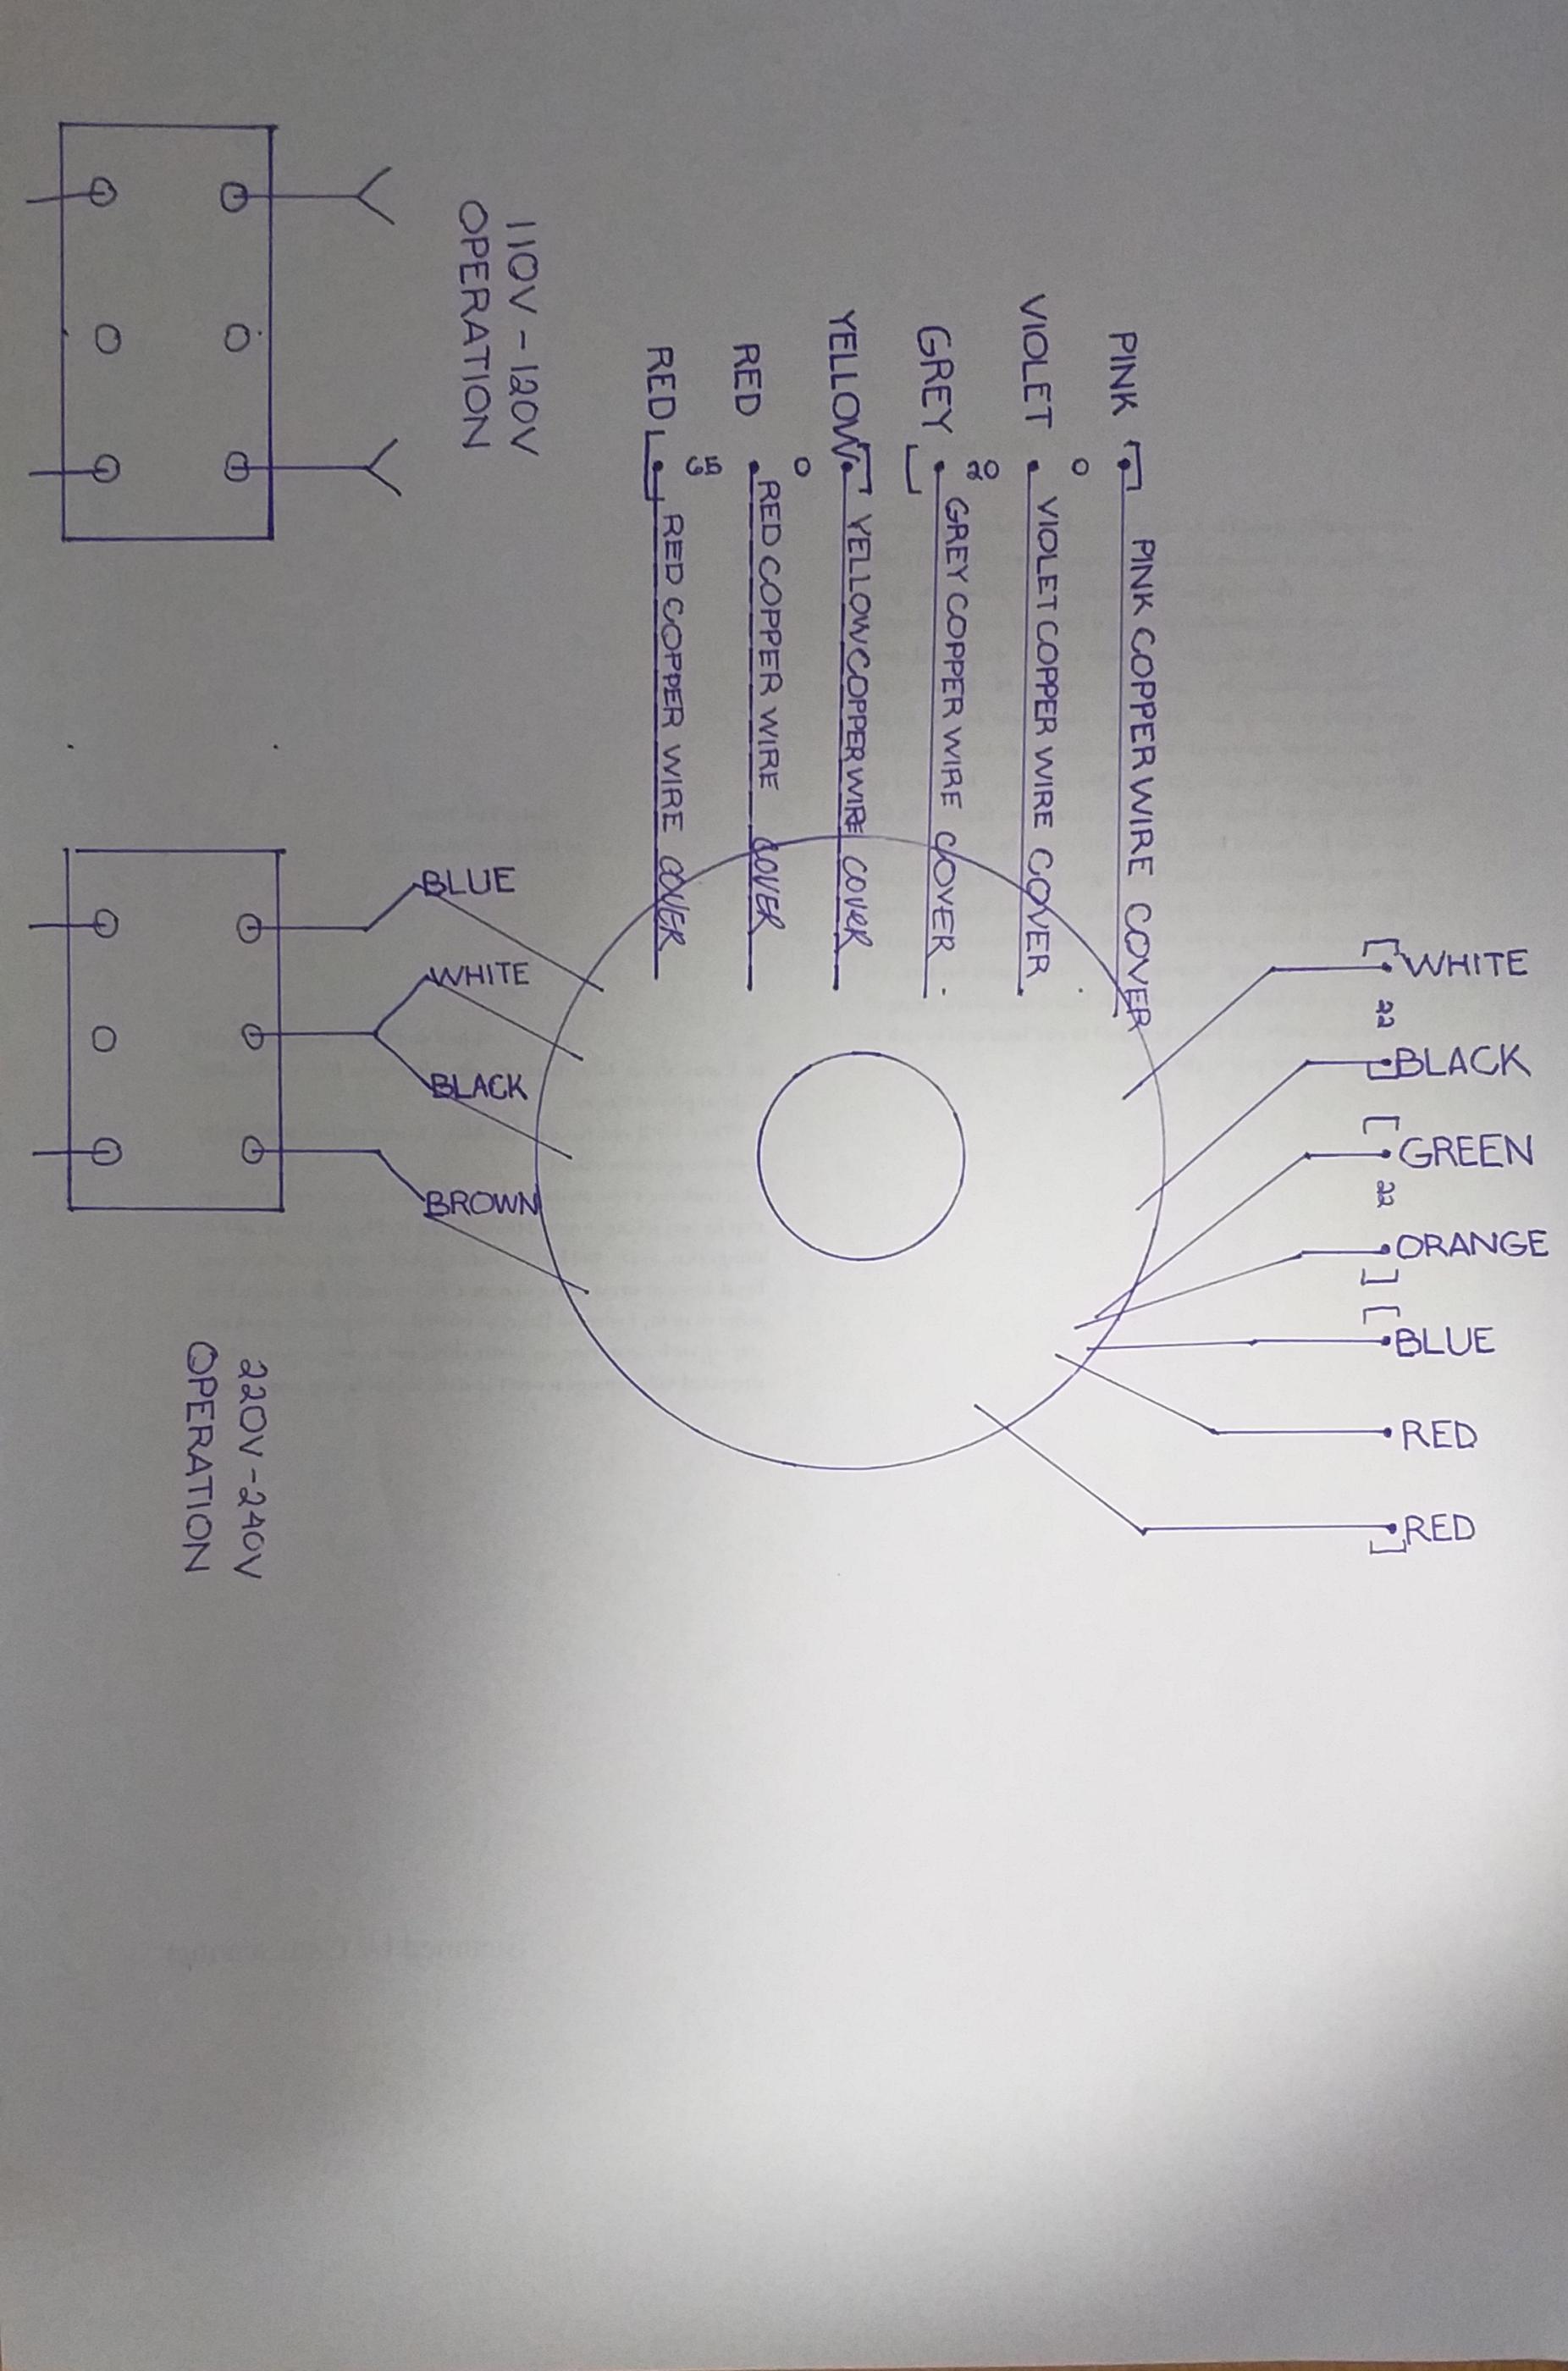 PINK
VIOLET
GREY
YELLOW
RED
RED
0
20
0
65
PINK COPPER WIRE COVER
VIOLET COPPER WIRE COVER
GREY COPPER WIRE COVER
YELLOW COPPER WIRE COVER
RED COPPER WIRE COVER
RED COPPER WIRE COVER
110V - 120V
OPERATION
BLUE
WHITE
BLACK
BROWN
220V - 240V
OPERATION
WHITE
22
BLACK
GREEN
22
ORANGE
BLUE
RED
RED